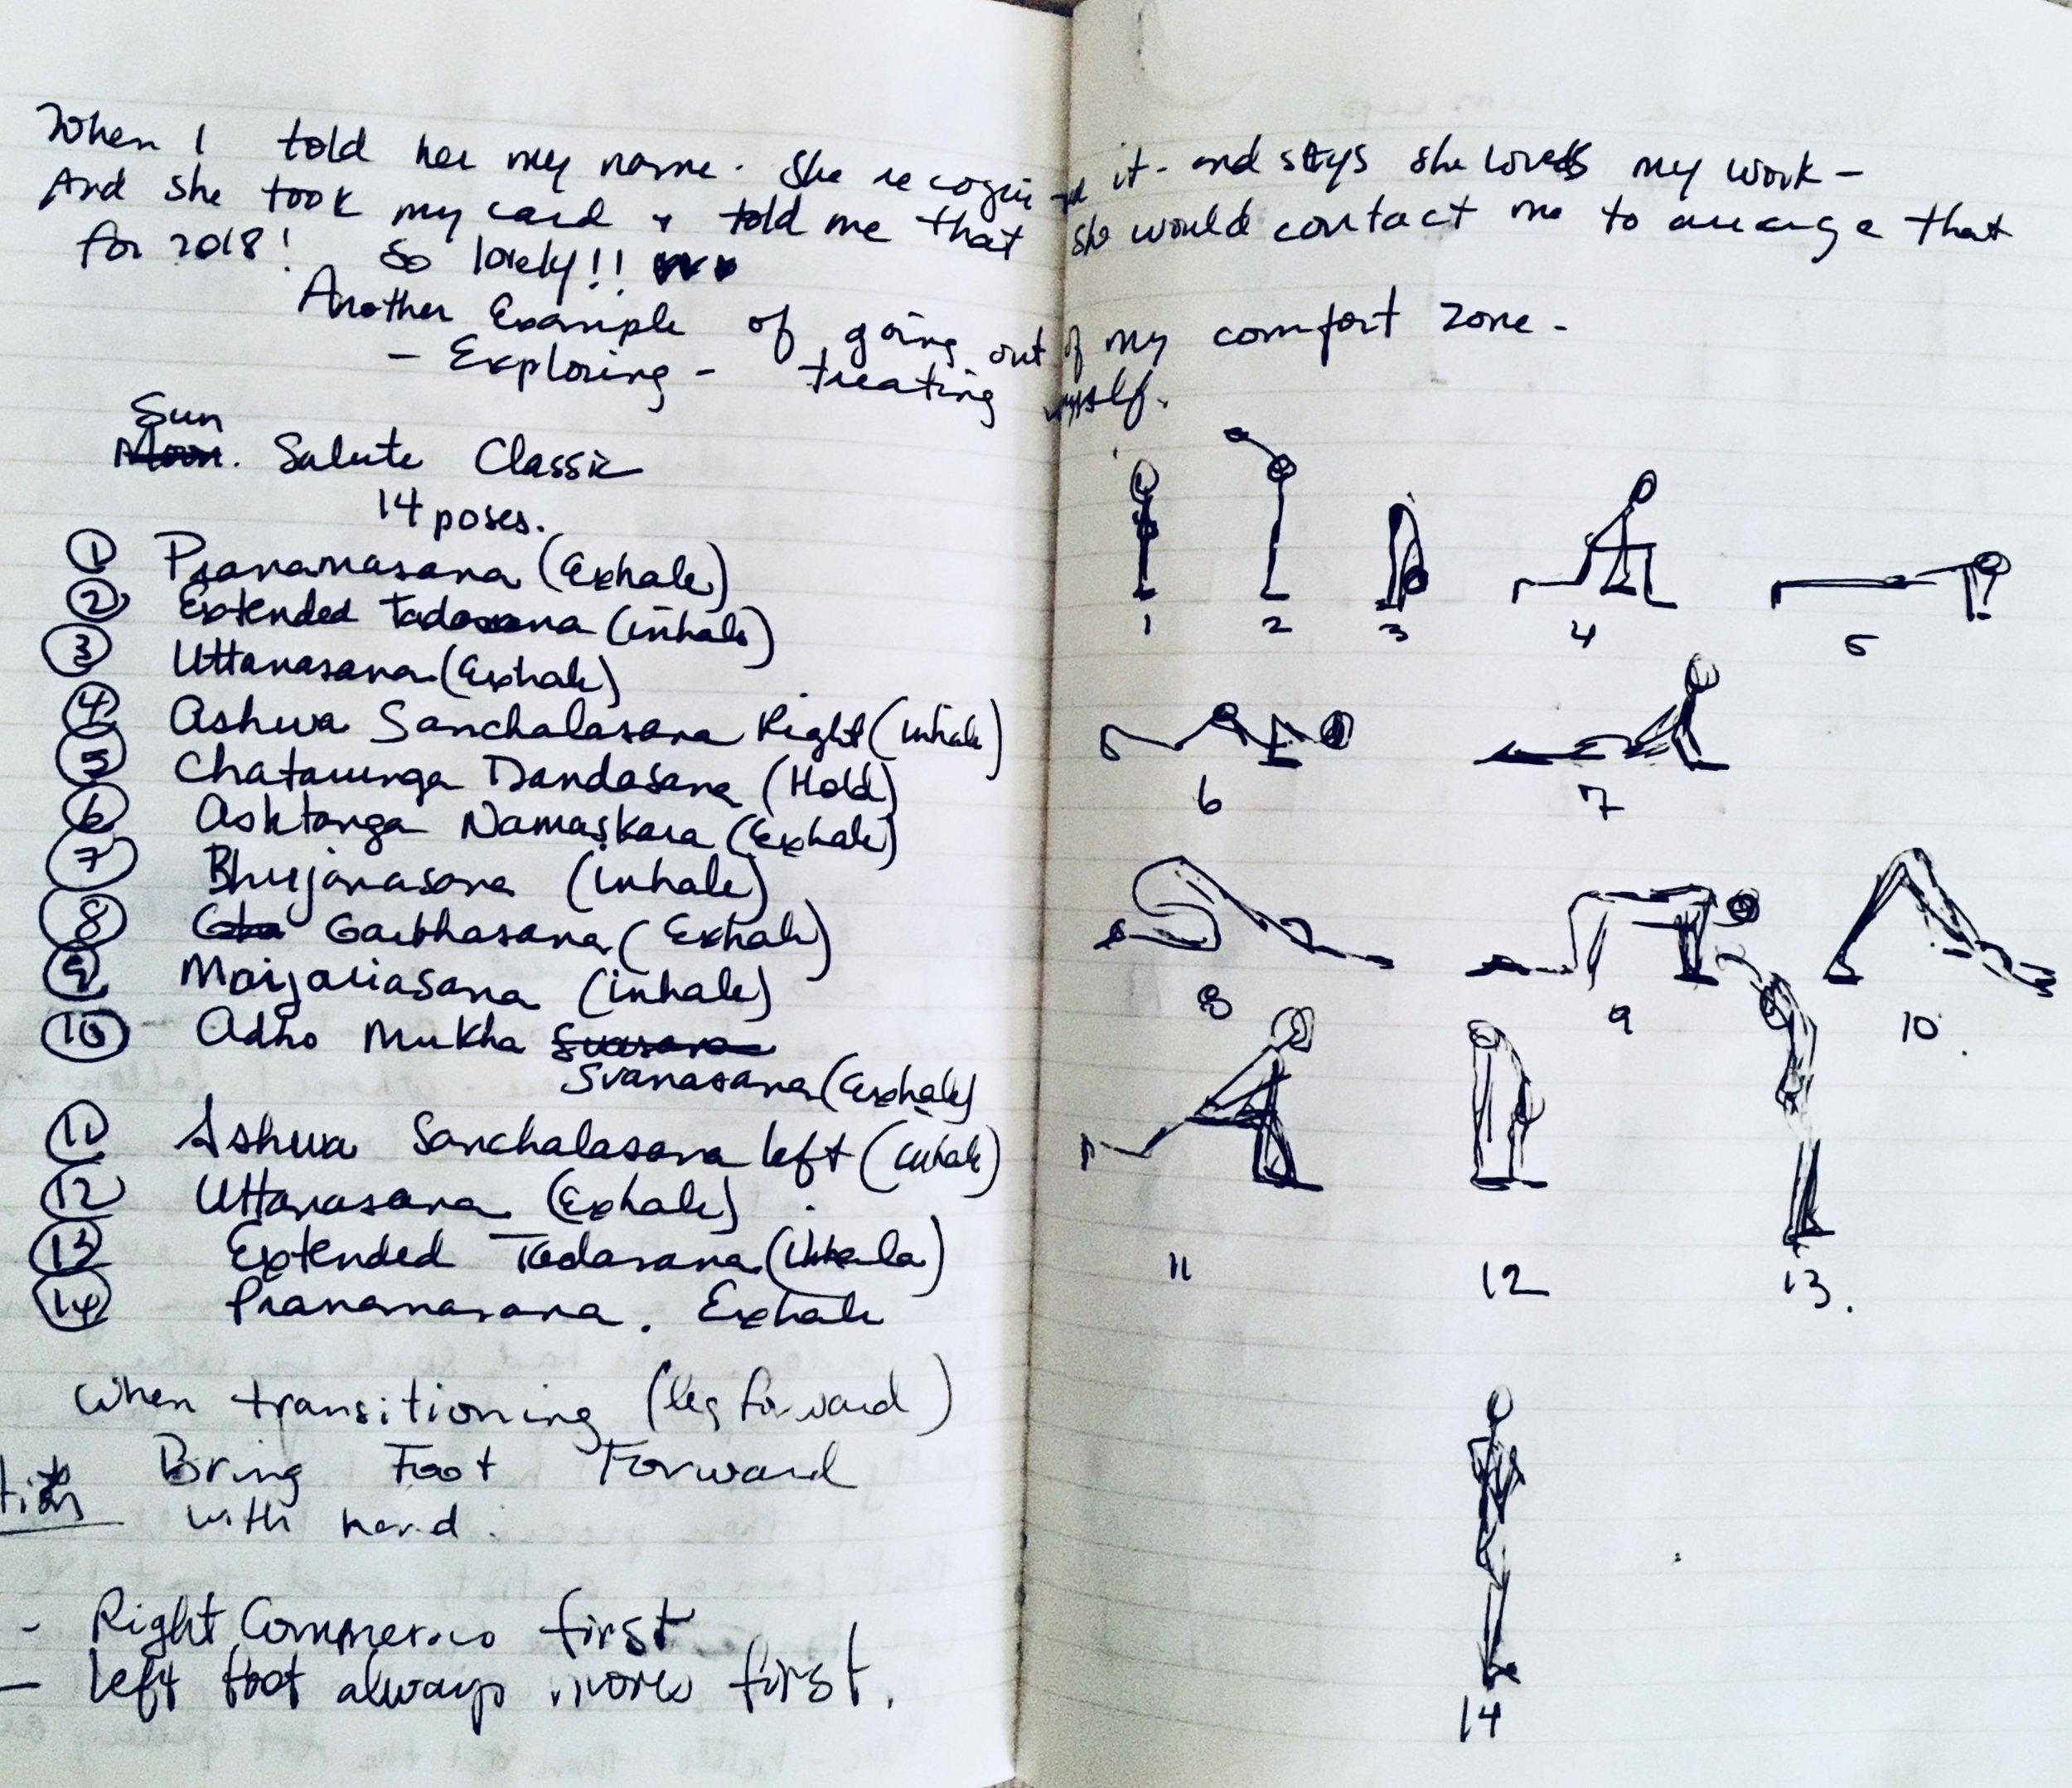 When I told her my name. She recognized it - and says she loves my work -
And she took my card & told me that she would contact me to arrange that
for 2018! So lovely!! ♥♥♥
Another Example of going out of my comfort zone -
- Exploring - treating myself.
Sun
Moon. Salute Classic
14 poses.
1 Pranamasana (Exhale)
2 Extended Tadasana (inhale)
3 Uttanasana (Exhale)
4 Ashwa Sanchalasana Right (inhale)
5 Chataurnga Dandasana (Hold)
6 Ashtanga Namaskara (Exhale)
7 Bhujanasana (inhale)
8 Garbhasana (Exhale)
9 Marjariasana (inhale)
10 Adho Mukha
Svanasana (Exhale)
11 Ashwa Sanchalasana left (inhale)
12 Uttanasana (Exhale)
13 Extended Tadasana
14 Pranamasana. Exhale
When transitioning (leg forward)
Bring Foot Forward
with hand.
- Right first
- left foot always moves first.
1 2 3 4 5
6 7
8 9 10.
11 12 13.
14